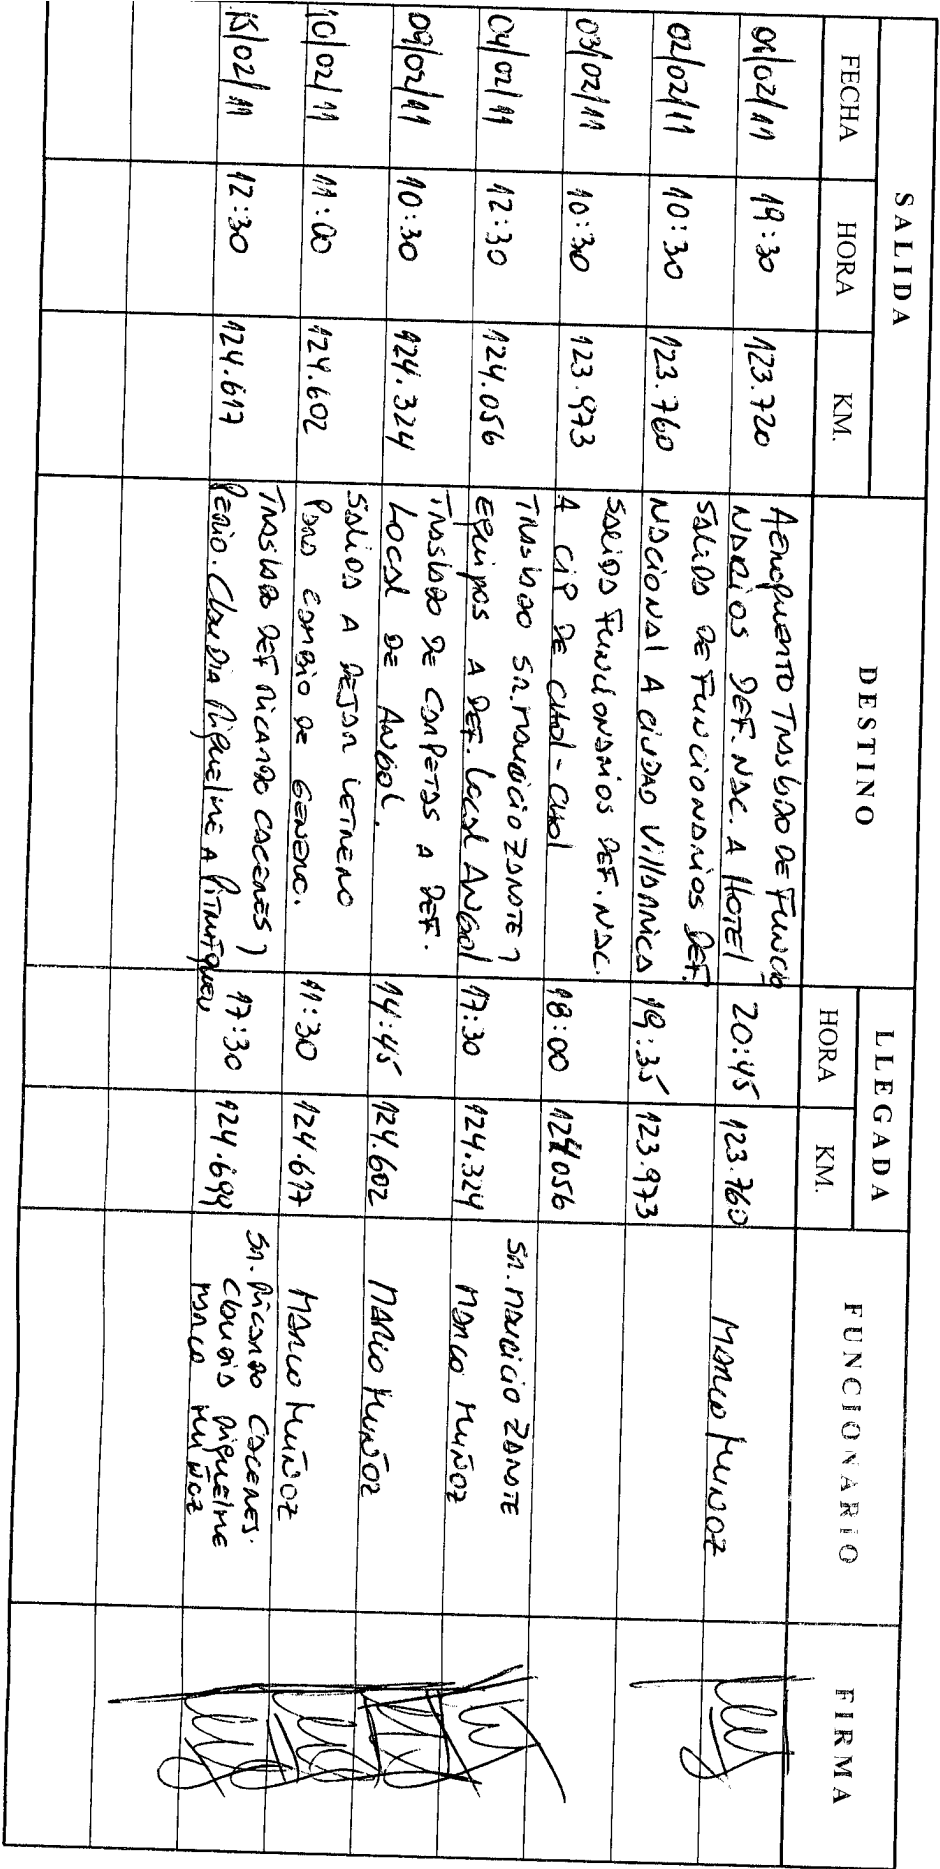 SALIDA DESTINO LLEGADA FUNCIONARIO FIRMA
FECHA HORA KM. HORA KM.
01/02/11 19:30 123.720 Aeropuerto Traslado de Funcio
narios Def. Nac. A Hotel 20:45 123.760 Marco Muñoz
02/02/11 10:30 123.760 Salida de Funcionarios Def.
Nacional A ciudad Villarrica 19:35 123.973
03/02/11 10:30 123.973 Salida Funcionarios Def. Nac.
A CIP de Chol-Chol 18:00 124056
04/02/11 12:30 124.056 Traslado Sr. Mauricio Zarate y
Equipos A Def. Local Angol 17:30 124.324 Sr. Mauricio Zarate
Marco Muñoz
09/02/11 10:30 124.324 Traslado de Carpetas A Def.
Local de Angol. 14:45 124.602 Mario Muñoz
10/02/11 11:00 124.602 Salida A Dejar Letrero
Para Cambio de Genero. 11:30 124.617 Marco Muñoz
15/02/11 12:30 124.617 Traslado Def Ricardo Caceres y
Perio. Claudia Riquelme A Pitrufquen 17:30 124.699 Sr. Ricardo Caceres.
Claudia Riquelme
Marco Muñoz